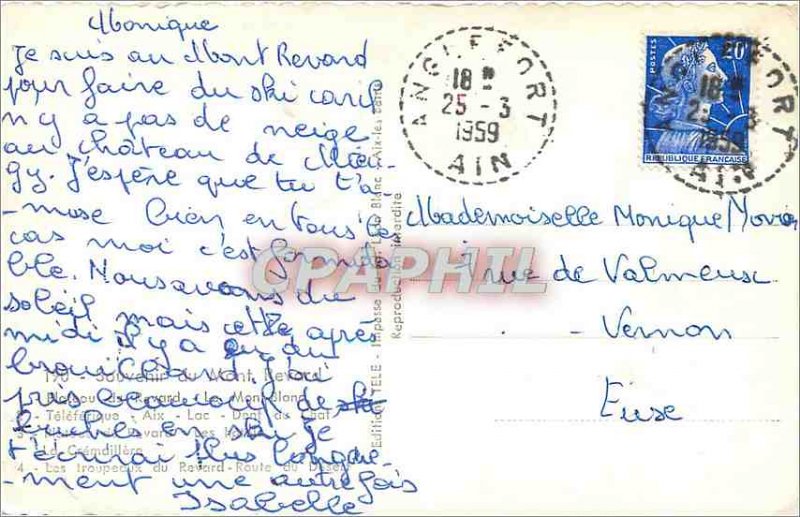 Monique
Je suis au Mont Revard
pour faire du ski car il
n y a pas de neige
au château de Mieu-
gy. J'espère que tu t'a
-muse bien en tous le
cas moi c'est formida
ble. Nous avons du
soleil mais cette après
midi il y a eu du
brouillard. J'ai
pris
en ski je
t'écrirai plus longue
-ment une autre fois
Isabelle
190 - Souvenir du Mont Revard
Plateau du Revard - Le Mont-Blanc
2 - Téléférique - Aix - Lac - Dent du Chat
3
La Crémaillère
4 - Les troupeaux du Revard - Route du Désert
Reproduction interdite
ANGLEFORT
18 H
25 - 3
1959
AIN
POSTES
20F
REPUBLIQUE FRANÇAISE
Mademoiselle Monique
rue de Valmeux
- Vernon
Eure
CPAPHIL